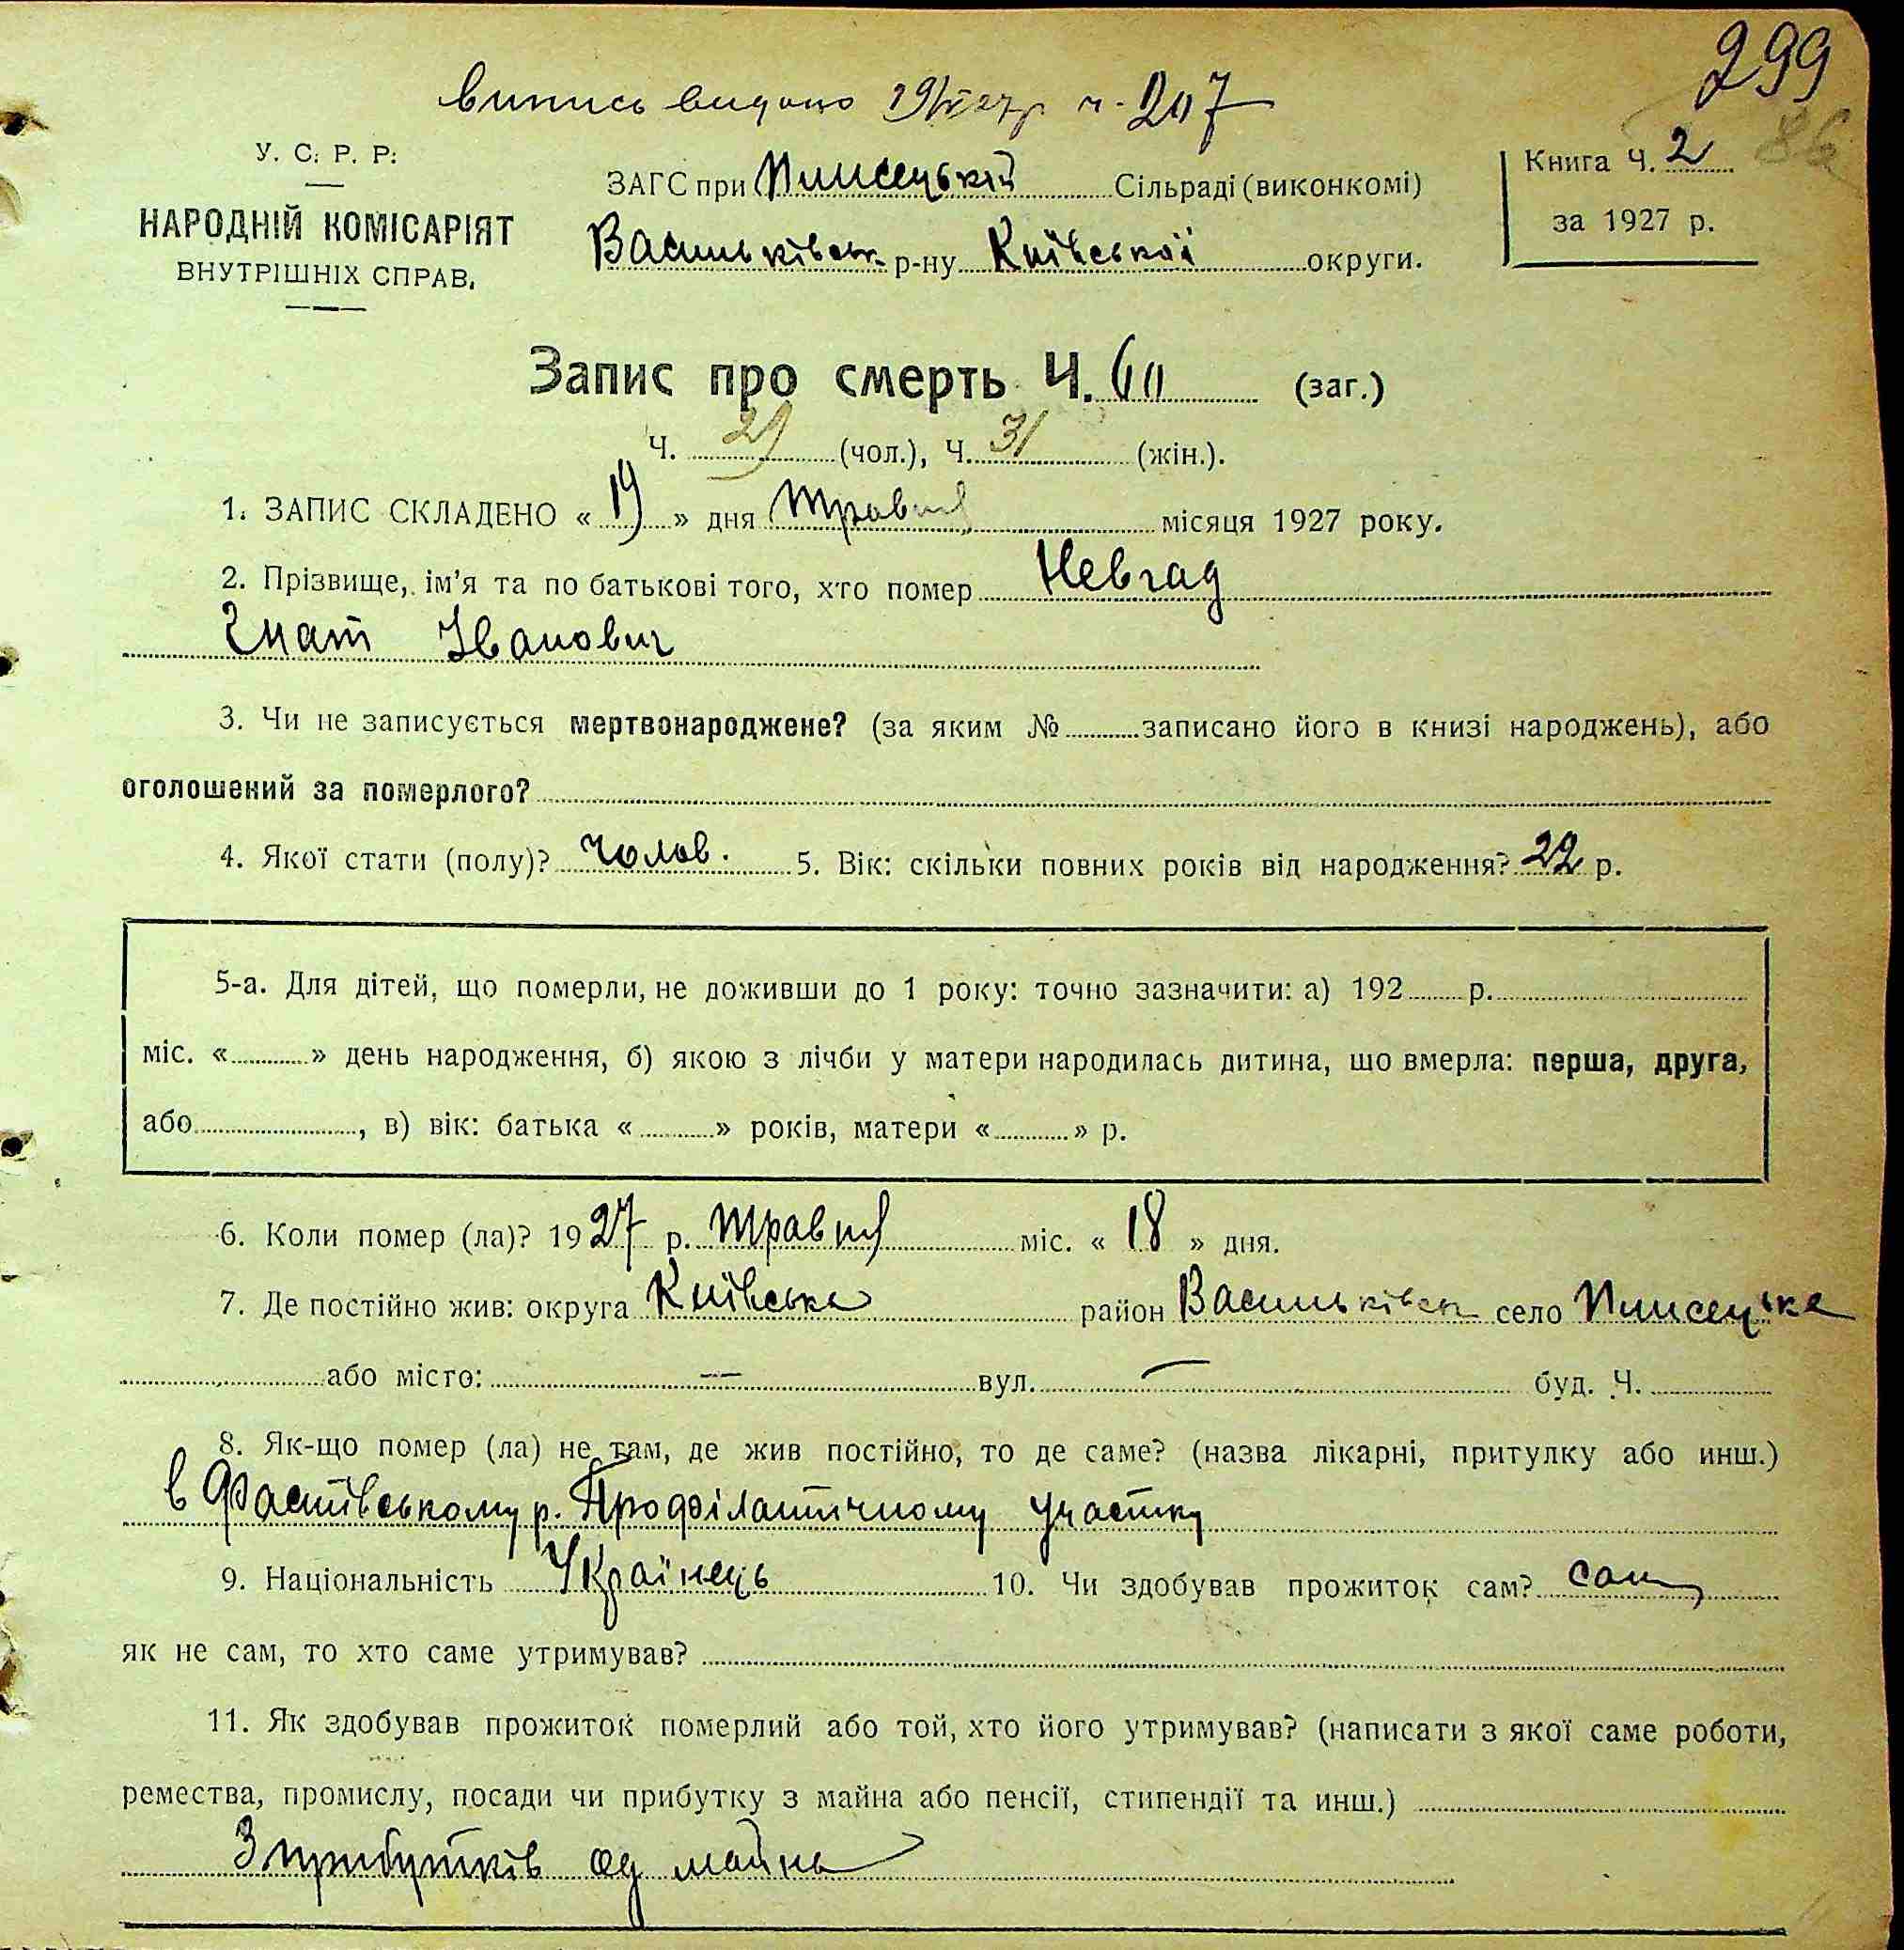 299
випись видано 29/VI 27 р. ч. 207
86
У. С. Р. Р.
НАРОДНІЙ КОМІСАРІЯТ
ВНУТРІШНІХ СПРАВ.
ЗАГС при Плисецькій Сільраді (виконкомі)
Васильківськ. р-ну Київської округи.
Книга Ч. 2
за 1927 р.
Запис про смерть Ч. 60 (заг.)
Ч. 29 (чол.), Ч. 31 (жін.).
1. ЗАПИС СКЛАДЕНО « 19 » дня травня місяця 1927 року.
2. Прізвище, ім'я та по батькові того, хто помер Невгад
Гнат Іванович
3. Чи не записується мертвонароджене? (за яким № записано його в книзі народжень), або
оголошений за померлого?
4. Якої стати (полу)? Чолов. 5. Вік: скільки повних років від народження? 22 р.
5-а. Для дітей, що померли, не доживши до 1 року: точно зазначити: а) 192 р.
міс. « » день народження, б) якою з лічби у матери народилась дитина, що вмерла: перша, друга,
або , в) вік: батька « » років, матери « » р.
6. Коли помер (ла)? 1927 р. травня міс. « 18 » дня.
7. Де постійно жив: округа Київська район Васильківськ село Плисецьке
або місто: — вул. — буд. Ч.
8. Як-що помер (ла) не там, де жив постійно, то де саме? (назва лікарні, притулку або инш.)
в Фастівському р. Профілатичному участку
9. Національність Українець 10. Чи здобував прожиток сам? сам
як не сам, то хто саме утримував?
11. Як здобував прожиток померлий або той, хто його утримував? (написати з якої саме роботи,
ремества, промислу, посади чи прибутку з майна або пенсії, стипендії та инш.)
З прибутків од майна